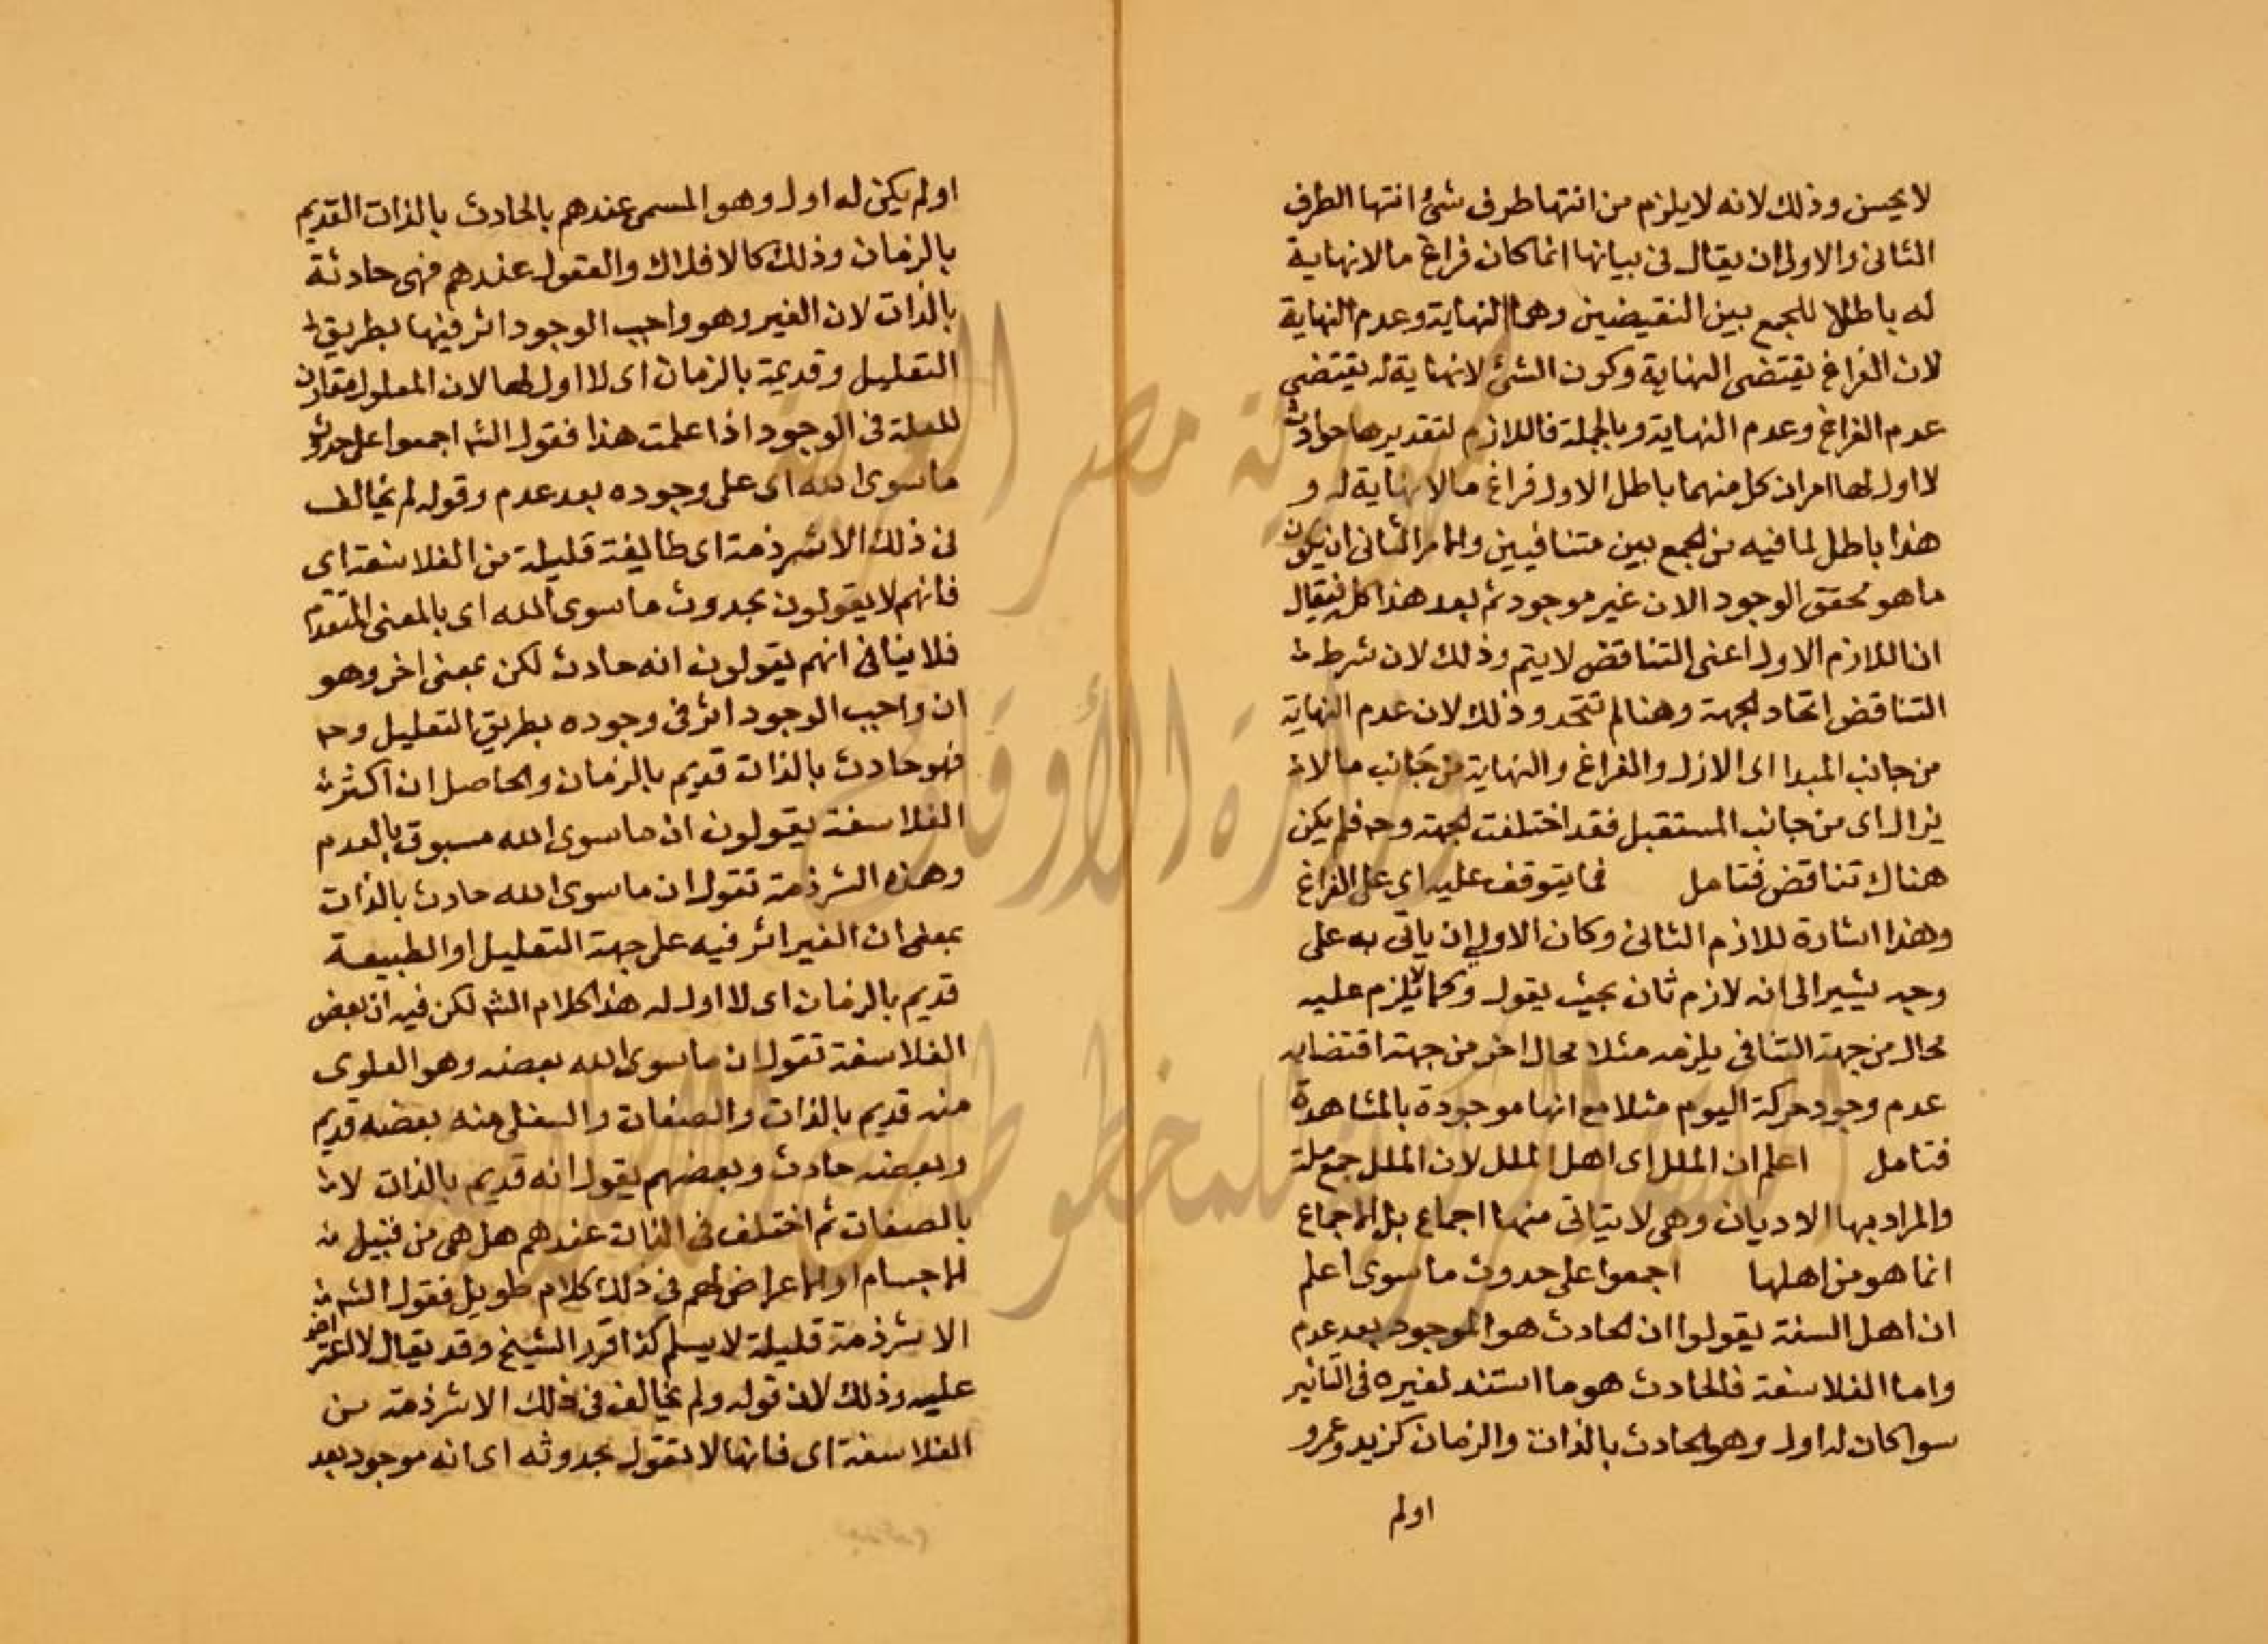 لا يحسن وذلك لانه لا يلزم من انتها طرف شئ انتها الطرف
الثانى والاولى ان يقال فى بيانها انما كان فراغ ما لا نهاية
له باطلا للجمع بين النقيضين وهما النهاية وعدم النهاية
لان الفراغ يقتضى النهاية وكون الشئ لا نهاية له يقتضى
عدم الفراغ وعدم النهاية وبالجملة فاللازم لتقديرها حوادث
لا اول لها امران كل منهما باطل الاول فراغ ما لا نهاية له و
هذا باطل لما فيه من الجمع بين متنافيين والامر الثانى ان يكون
ما هو محقق الوجود الان غير موجود ثم بعد هذا كله فيقال
ان اللازم الاول اعنى التناقض لا يتم وذلك لان شرط
التناقض اتحاد الجهة وهنا لم تتحد وذلك لان عدم النهاية
من جانب المبدا اى الازل والفراغ والنهاية من جانب ما لا
يزال اى من جانب المستقبل فقد اختلفت الجهة وح فلم يكن
هناك تناقض فتامل فما يتوقف عليه اى على الفراغ
وهذا اشارة للازم الثانى وكان الاولى ان ياتى به على
وجه يشير الى انه لازم ثان بحيث يقول وكما يلزم عليه
محال من جهة التنافى يلزمه مثلا محال اخر من جهة اقتضايه
عدم وجود حركة اليوم مثلا مع انها موجودة بالمشاهدة
فتامل اعلم ان الملل اى اهل الملل لان الملل جمع ملة
والمراد بها الاديان وهى لا يتاتى منها اجماع بل الاجماع
انما هو من اهلها اجمعوا على حدوث ما سوى اعلم
ان اهل السنة يقولوا ان الحادث هو الموجود بعد عدم
واما الفلاسفة فالحادث هو ما استند لغيره فى التاثير
سوا كان له اول وهو الحادث بالذات والزمان كزيد وعمرو
اولم
اولم يكن له اول وهو المسمى عندهم بالحادث بالذات القديم
بالزمان وذلك كالافلاك والعقول عندهم فهى حادثة
بالذات لان الغير وهو واجب الوجود اثر فيها بطريق
التعليل وقديمة بالزمان اى لا اول لها لان المعلول مقارن
للعلة فى الوجود اذا علمت هذا فقول الشه اجمعوا على حدوث
ما سوى الله اى على وجوده بعد عدم وقوله لم يخالف
فى ذلك الا شرذمة اى طايفة قليلة من الفلاسفة اى
فانهم لا يقولون بحدوث ما سوى الله اى بالمعنى المتقدم
فلا ينافى انهم يقولون انه حادث لكن بمعنى اخر وهو
ان واجب الوجود اثر فى وجوده بطريق التعليل وح
فهو حادث بالذات قديم بالزمان والحاصل ان اكثر
الفلاسفة يقولون ان ما سوى الله مسبوق بالعدم
وهذه الشرذمة تقول ان ما سوى الله حادث بالذات
بمعنى ان الغير اثر فيه على جهة التعليل او الطبيعة
قديم بالزمان اى لا اول له هذا كلام الشه لكن فيه ان بعض
الفلاسفة تقول ان ما سوى الله بعضه وهو العلوى
منه قديم بالذات والصفات والسفلى منه بعضه قديم
وبعضه حادث وبعضهم يقول انه قديم بالذات لا
بالصفات ثم اختلف فى الذات عندهم هل هى من قبيل
الاجسام او الاعراض لهم فى ذلك كلام طويل فقول الشه
الا شرذمة قليلة لا يسلم كذا قرر الشيخ وقد يقال لا اعتراض
عليه وذلك لان قوله ولم يخالف فى ذلك الا شرذمة من
الفلاسفة اى فانها لا تقول بحدوثه اى انه موجود بعد
جمهورية مصر العربية
وزارة الأوقاف
المكتبة المركزية للمخطوطات الإسلامية